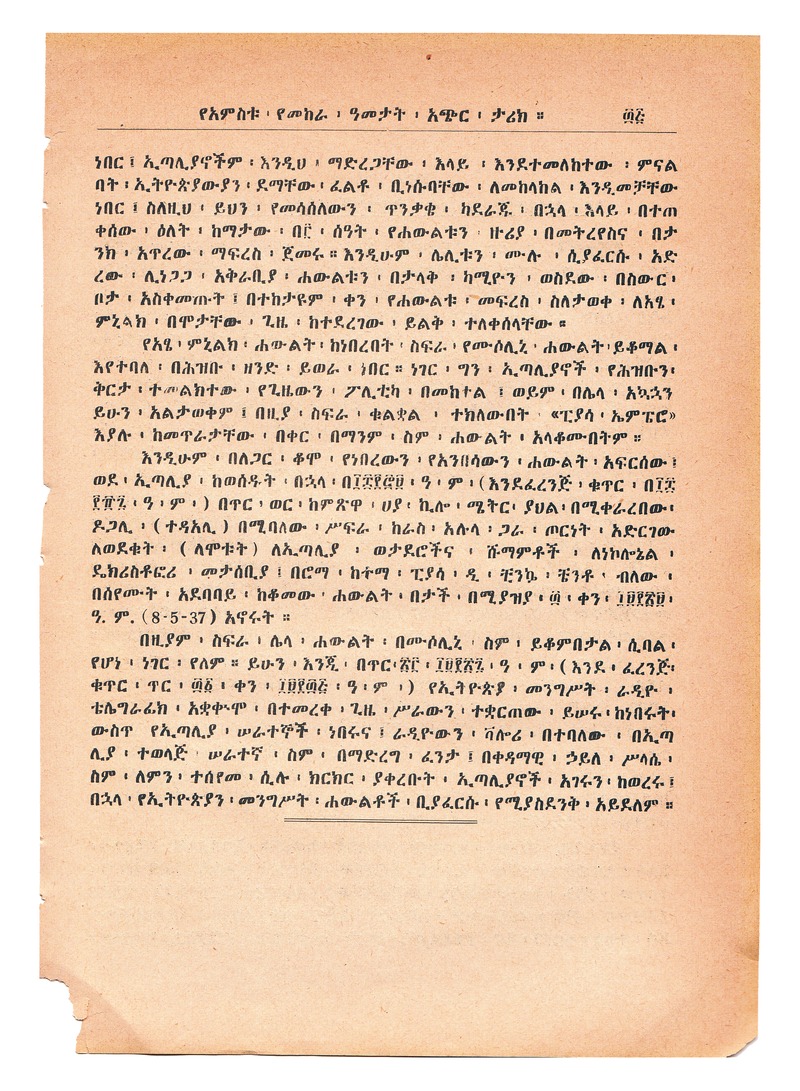 የአምስቱ ፡ የመከራ ፡ ዓመታት ፡ አጭር ፡ ታሪክ ። ፴፭
ነበር ፤ ኢጣሊያኖችም ፡ እንዲህ ፡ ማድረጋቸው ፡ እላይ ፡ እንደተመለከተው ፡ ምናል
ባት ፡ ኢትዮጵያውያን ፡ ደማቸው ፡ ፈልቶ ፡ ቢነሱባቸው ፡ ለመከላከል ፡ እንዲመቻቸው
ነበር ፤ ስለዚህ ፡ ይህን ፡ የመሳሰለውን ፡ ጥንቃቄ ፡ ካደራጁ ፡ በኋላ ፡ እላይ ፡ በተጠ
ቀሰው ፡ ዕለት ፡ ከማታው ፡ በ፫ ፡ ሰዓት ፡ የሐውልቱን ፡ ዙሪያ ፡ በመትረየስና ፡ በታ
ንክ ፡ አጥረው ፡ ማፍረስ ፡ ጀመሩ ። እንዲሁም ፡ ሌሊቱን ፡ ሙሉ ፡ ሲያፈርሱ ፡ አድ
ረው ፡ ሊነጋጋ ፡ አቅራቢያ ፡ ሐውልቱን ፡ በታላቅ ፡ ካሚዮን ፡ ወስደው ፡ በስውር ፡
ቦታ ፡ አስቀመጡት ፤ በተከታዩም ፡ ቀን ፡ የሐውልቱ ፡ መፍረስ ፡ ስለታወቀ ፡ ለአፄ ፡
ምኒልክ ፡ በሞታቸው ፡ ጊዜ ፡ ከተደረገው ፡ ይልቅ ፡ ተለቀሰላቸው ።
የአፄ ፡ ምኒልክ ፡ ሐውልት ፡ ከነበረበት ፡ ስፍራ ፡ የሙሶሊኒ ፡ ሐውልት ፡ ይቆማል ፡
እየተባለ ፡ በሕዝቡ ፡ ዘንድ ፡ ይወራ ፡ ነበር ። ነገር ፡ ግን ፡ ኢጣሊያኖች ፡ የሕዝቡን ፡
ቅርታ ፡ ተመልክተው ፡ የጊዜውን ፡ ፖሊቲካ ፡ በመከተል ፤ ወይም ፡ በሌላ ፡ አኳኋን
ይሁን ፡ አልታወቀም ፤ በዚያ ፡ ስፍራ ፡ ቁልቋል ፡ ተክለውበት ፡ «ፒያሳ ፡ ኤምፔሮ»
እያሉ ፡ ከመጥራታቸው ፡ በቀር ፡ በማንም ፡ ስም ፡ ሐውልት ፡ አላቆሙበትም ።
እንዲሁም ፡ በለጋር ፡ ቆሞ ፡ የነበረውን ፡ የአንበሳውን ፡ ሐውልት ፡ አፍርሰው ፤
ወደ ፡ ኢጣሊያ ፡ ከወሰዱት ፡ በኋላ ፡ በ፲፰፻፸፱ ፡ ዓ ፡ ም ፡ (እንደፈረንጅ ፡ ቁጥር ፡ በ፲፰
፻፹፯ ፡ ዓ ፡ ም ፡ ) በጥር ፡ ወር ፡ ከምጽዋ ፡ ሀያ ፡ ኪሎ ፡ ሜትር ፡ ያህል ፡ በሚቀራረበው ፡
ዶጋሊ ፡ ( ተዳአሊ ) በሚባለው ፡ ሥፍራ ፡ ከራስ ፡ አሉላ ፡ ጋራ ፡ ጦርነት ፡ አድርገው
ለወደቁት ፡ ( ለሞቱት ) ለኢጣሊያ ፡ ወታደሮችና ፡ ሹማምቶች ፡ ለነኮሎኔል ፡
ዴክሪስቶፎሪ ፡ መታሰቢያ ፤ በሮማ ፡ ከተማ ፡ ፒያሳ ፡ ዲ ፡ ቺንኴ ፡ ቼንቶ ፡ ብለው ፡
በሰየሙት ፡ አደባባይ ፡ ከቆመው ፡ ሐውልት ፡ በታች ፡ በሚያዝያ ፡ ፴ ፡ ቀን ፡ ፲፱፻፳፱ ፡
ዓ. ም. (8-5-37) አኖሩት ።
በዚያም ፡ ስፍራ ፡ ሌላ ፡ ሐውልት ፡ በሙሶሊኒ ፡ ስም ፡ ይቆምበታል ፡ ሲባል ፡
የሆነ ፡ ነገር ፡ የለም ። ይሁን ፡ እንጂ ፡ በጥር ፡ ፳፫ ፡ ፲፱፻፳፯ ፡ ዓ ፡ ም ፡ (እንደ ፡ ፈረንጅ ፡
ቁጥር ፡ ጥር ፡ ፴፩ ፡ ቀን ፡ ፲፱፻፴፭ ፡ ዓ ፡ ም ፡ ) የኢትዮጵያ ፡ መንግሥት ፡ ራዲዮ ፡
ቴሌግራፊክ ፡ አቋቁሞ ፡ በተመረቀ ፡ ጊዜ ፡ ሥራውን ፡ ተቋርጠው ፡ ይሠሩ ፡ ከነበሩት ፡
ውስጥ ፡ የኢጣሊያ ፡ ሠራተኞች ፡ ነበሩና ፤ ራዲዮውን ፡ ቫሎሪ ፡ በተባለው ፡ በኢጣ
ሊያ ፡ ተወላጅ ፡ ሠራተኛ ፡ ስም ፡ በማድረግ ፡ ፈንታ ፤ በቀዳማዊ ፡ ኃይለ ፡ ሥላሴ ፡
ስም ፡ ለምን ፡ ተሰየመ ፡ ሲሉ ፡ ክርክር ፡ ያቀረቡት ፡ ኢጣሊያኖች ፡ አገሩን ፡ ከወረሩ ፤
በኋላ ፡ የኢትዮጵያን ፡ መንግሥት ፡ ሐውልቶች ፡ ቢያፈርሱ ፡ የሚያስደንቅ ፡ አይደለም ።